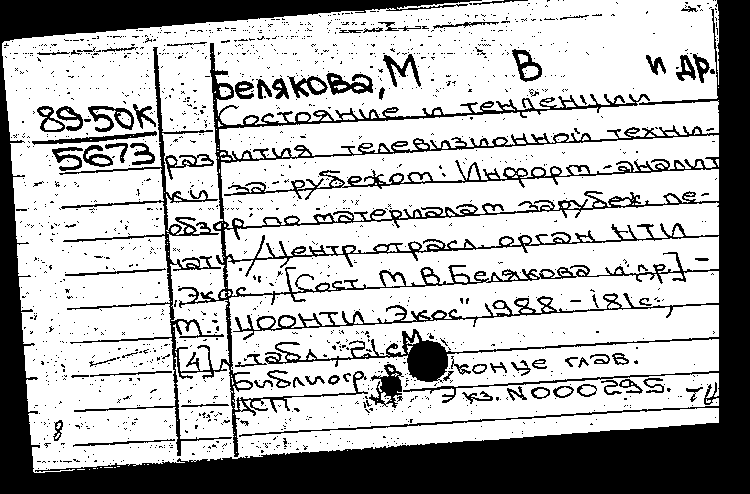 Белякова, М В и др.
89-50К
5673
Состояние и тенденции
развития телевизионной техни-
ки за рубежом: Информ.-аналит
обзор по материалам зарубеж. пе-
чати /Центр. отрасл. орган НТИ
"Экос"; [Сост. М.В.Белякова и др.] -
М.: ЦООНТИ "Экос", 1988. - 181с.,
[4] л. табл.; 21 см
Библиогр. в конце глав.
ДСП. Экз. N000295.
8